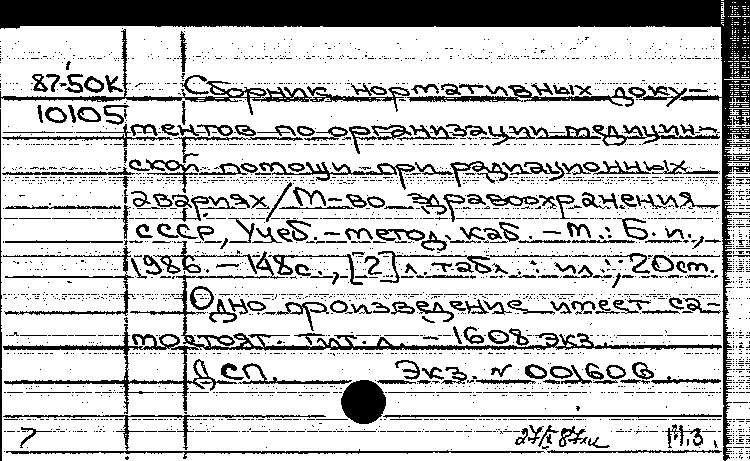 87-50К Сборник нормативных доку-
10105
ментов по организации медицин-
ской помощи при радиационных
авариях/М-во здравоохранения
СССР, Учеб.-метод. каб. - М.: Б. и.,
1986. - 148с., [2] л. табл. : ил.; 20см.
Одно произведение имеет са-
мостоят. тит. л. - 1608 экз.
ДСП. Экз. № 001606.
7